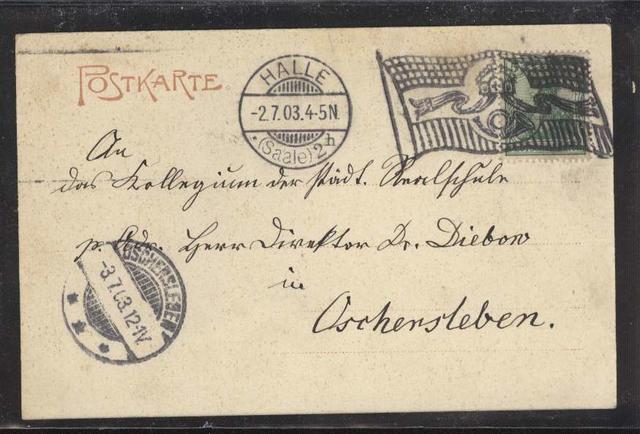 POSTKARTE
HALLE
-2.7.03.4-5N.
*(Saale)2*
An
das Kollegium der städt. Realschule
p. Adr. Herrn Direktor Dr. Diebow
in
Oschersleben.
OSCHERSLEBEN
-3.7.03.12-1V.